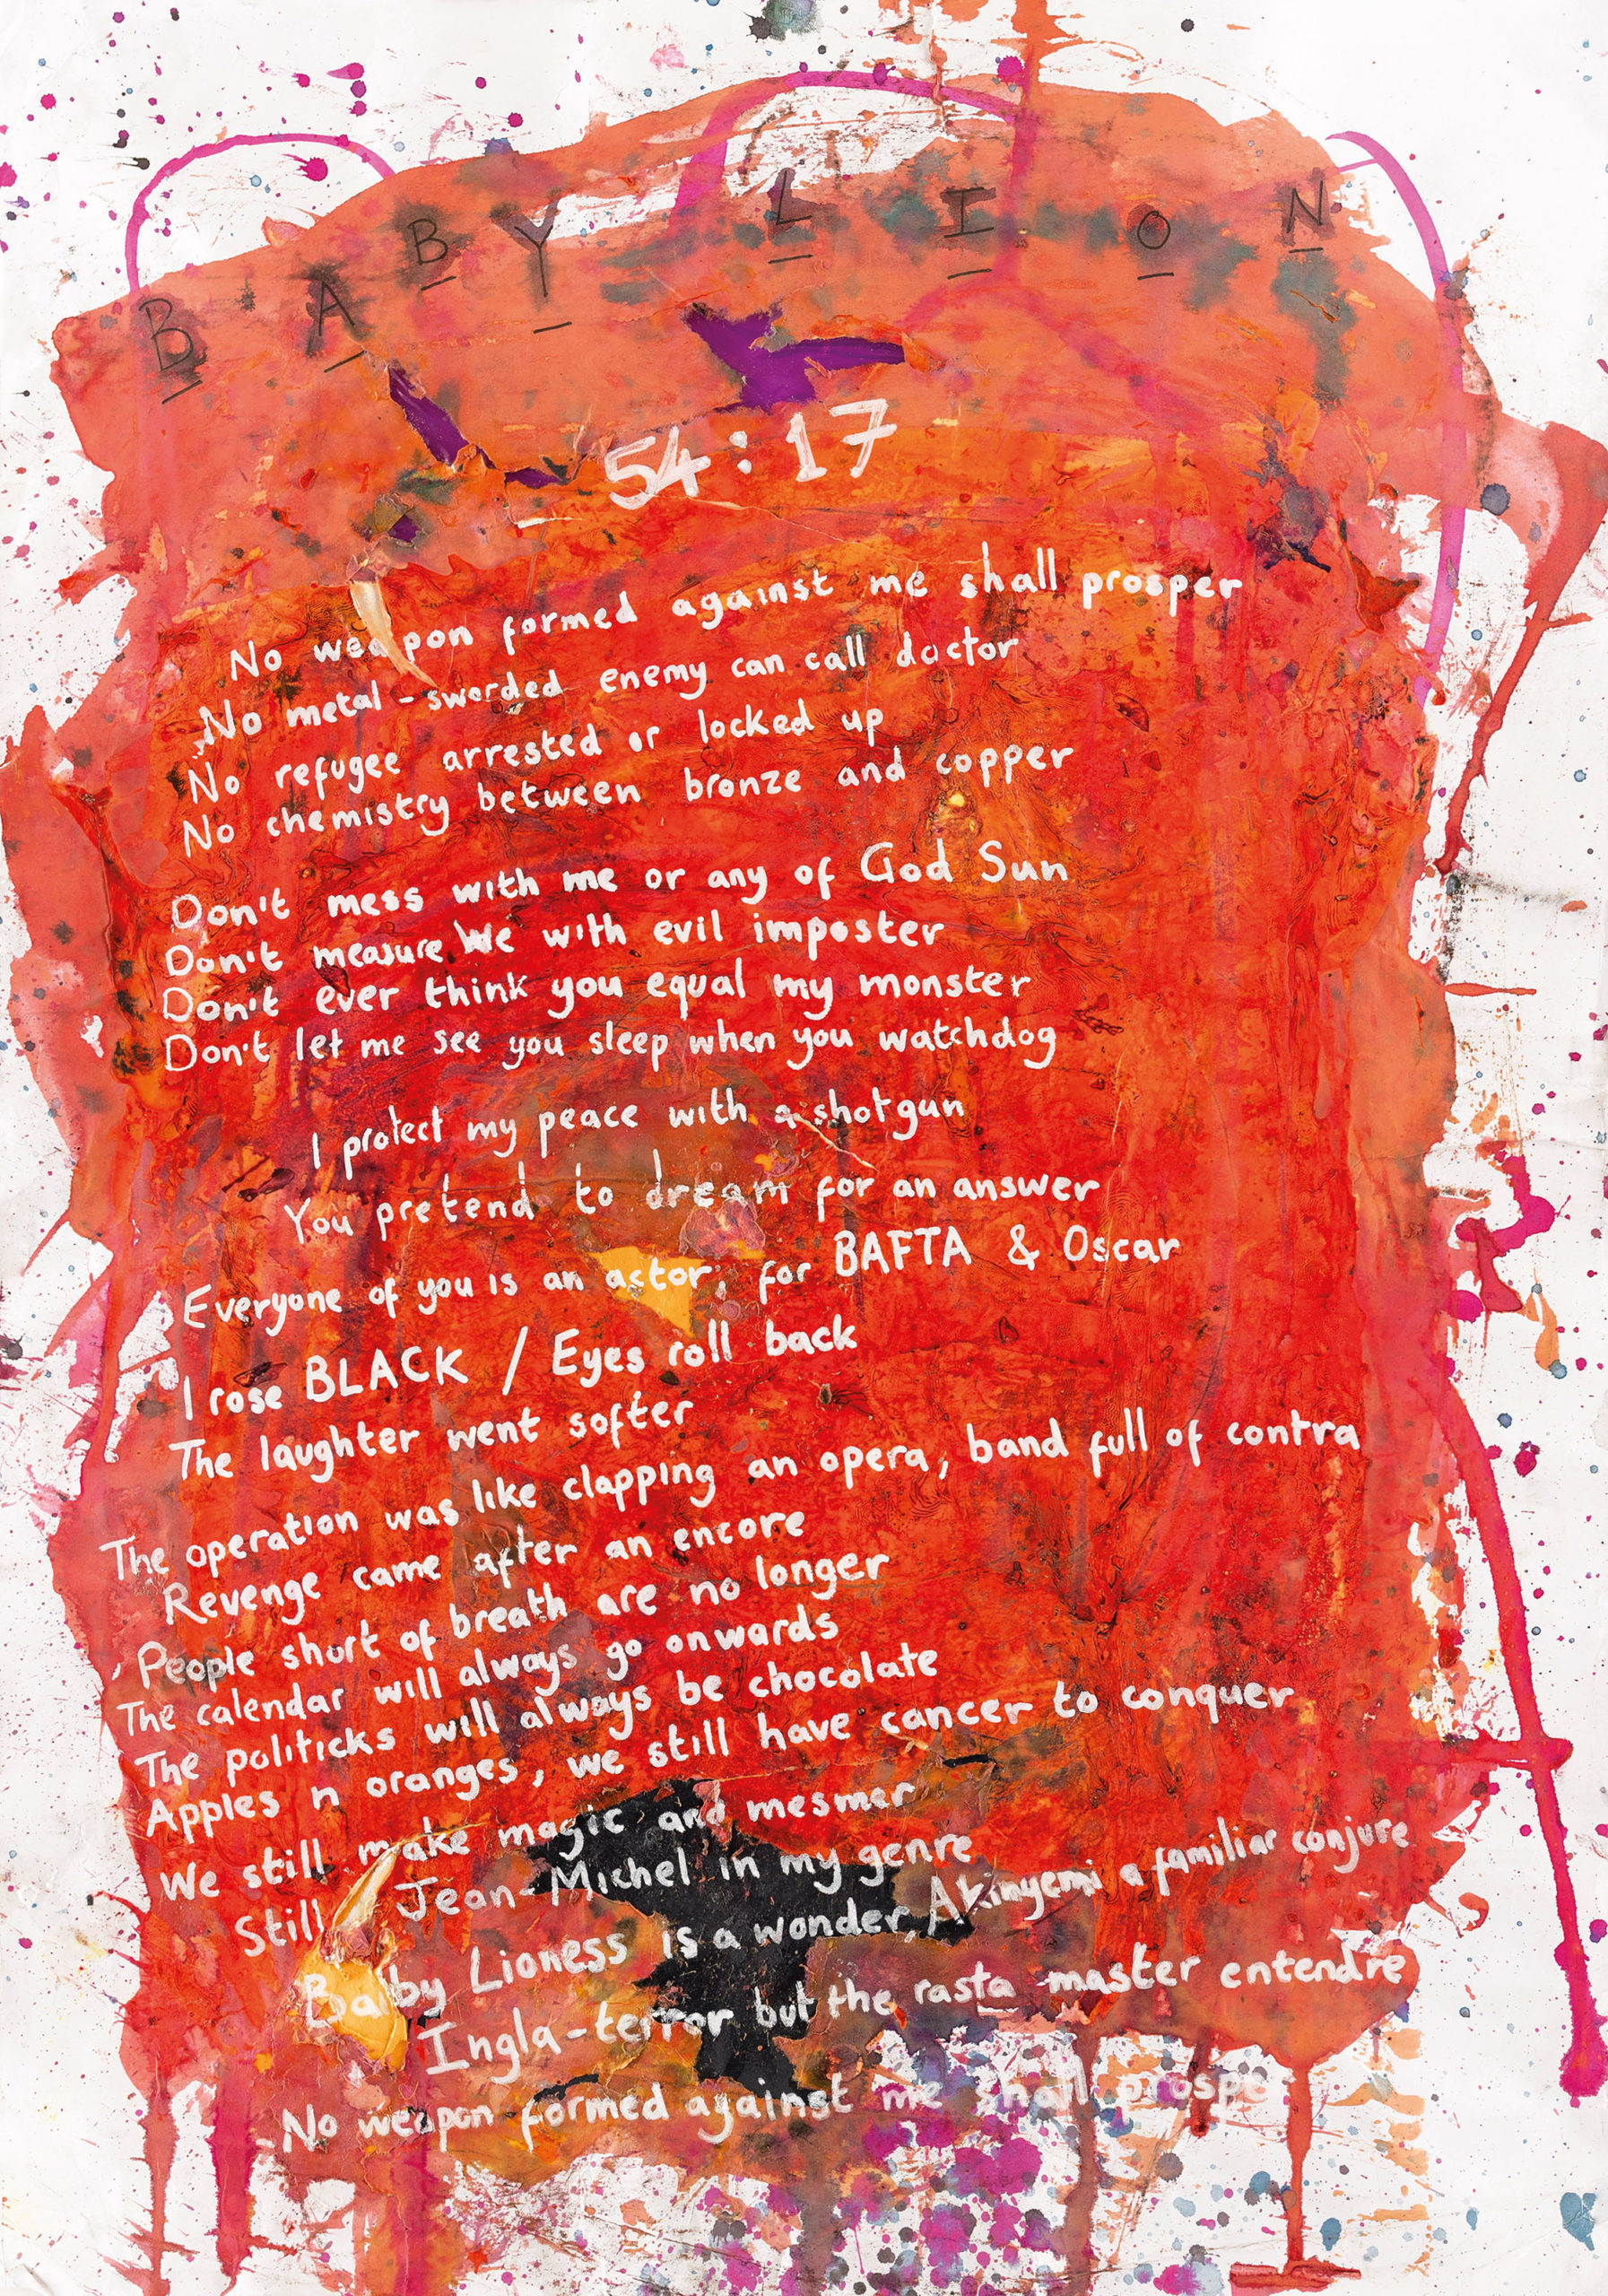 BABY LION
54:17
No weapon formed against me shall prosper
No metal-sworded enemy can call doctor
No refugee arrested or locked up
No chemistry between bronze and copper
Don't mess with me or any of God Sun
Don't measure We with evil imposter
Don't ever think you equal my monster
Don't let me see you sleep when you watchdog
I protect my peace with a shotgun
You pretend to dream for an answer
Everyone of you is an actor, for BAFTA & Oscar
I rose BLACK / Eyes roll back
The laughter went softer
The operation was like clapping an opera, band full of contra
Revenge came after an encore
People short of breath are no longer
The calendar will always go onwards
The politicks will always be chocolate
Apples n oranges, we still have cancer to conquer
We still make magic and mesmer
Still Jean-Michel in my genre
Baby Lioness is a wonder, Akinyemi a familiar conjure
Ingla-terror but the rasta master entendre
No weapon formed against me shall prospe